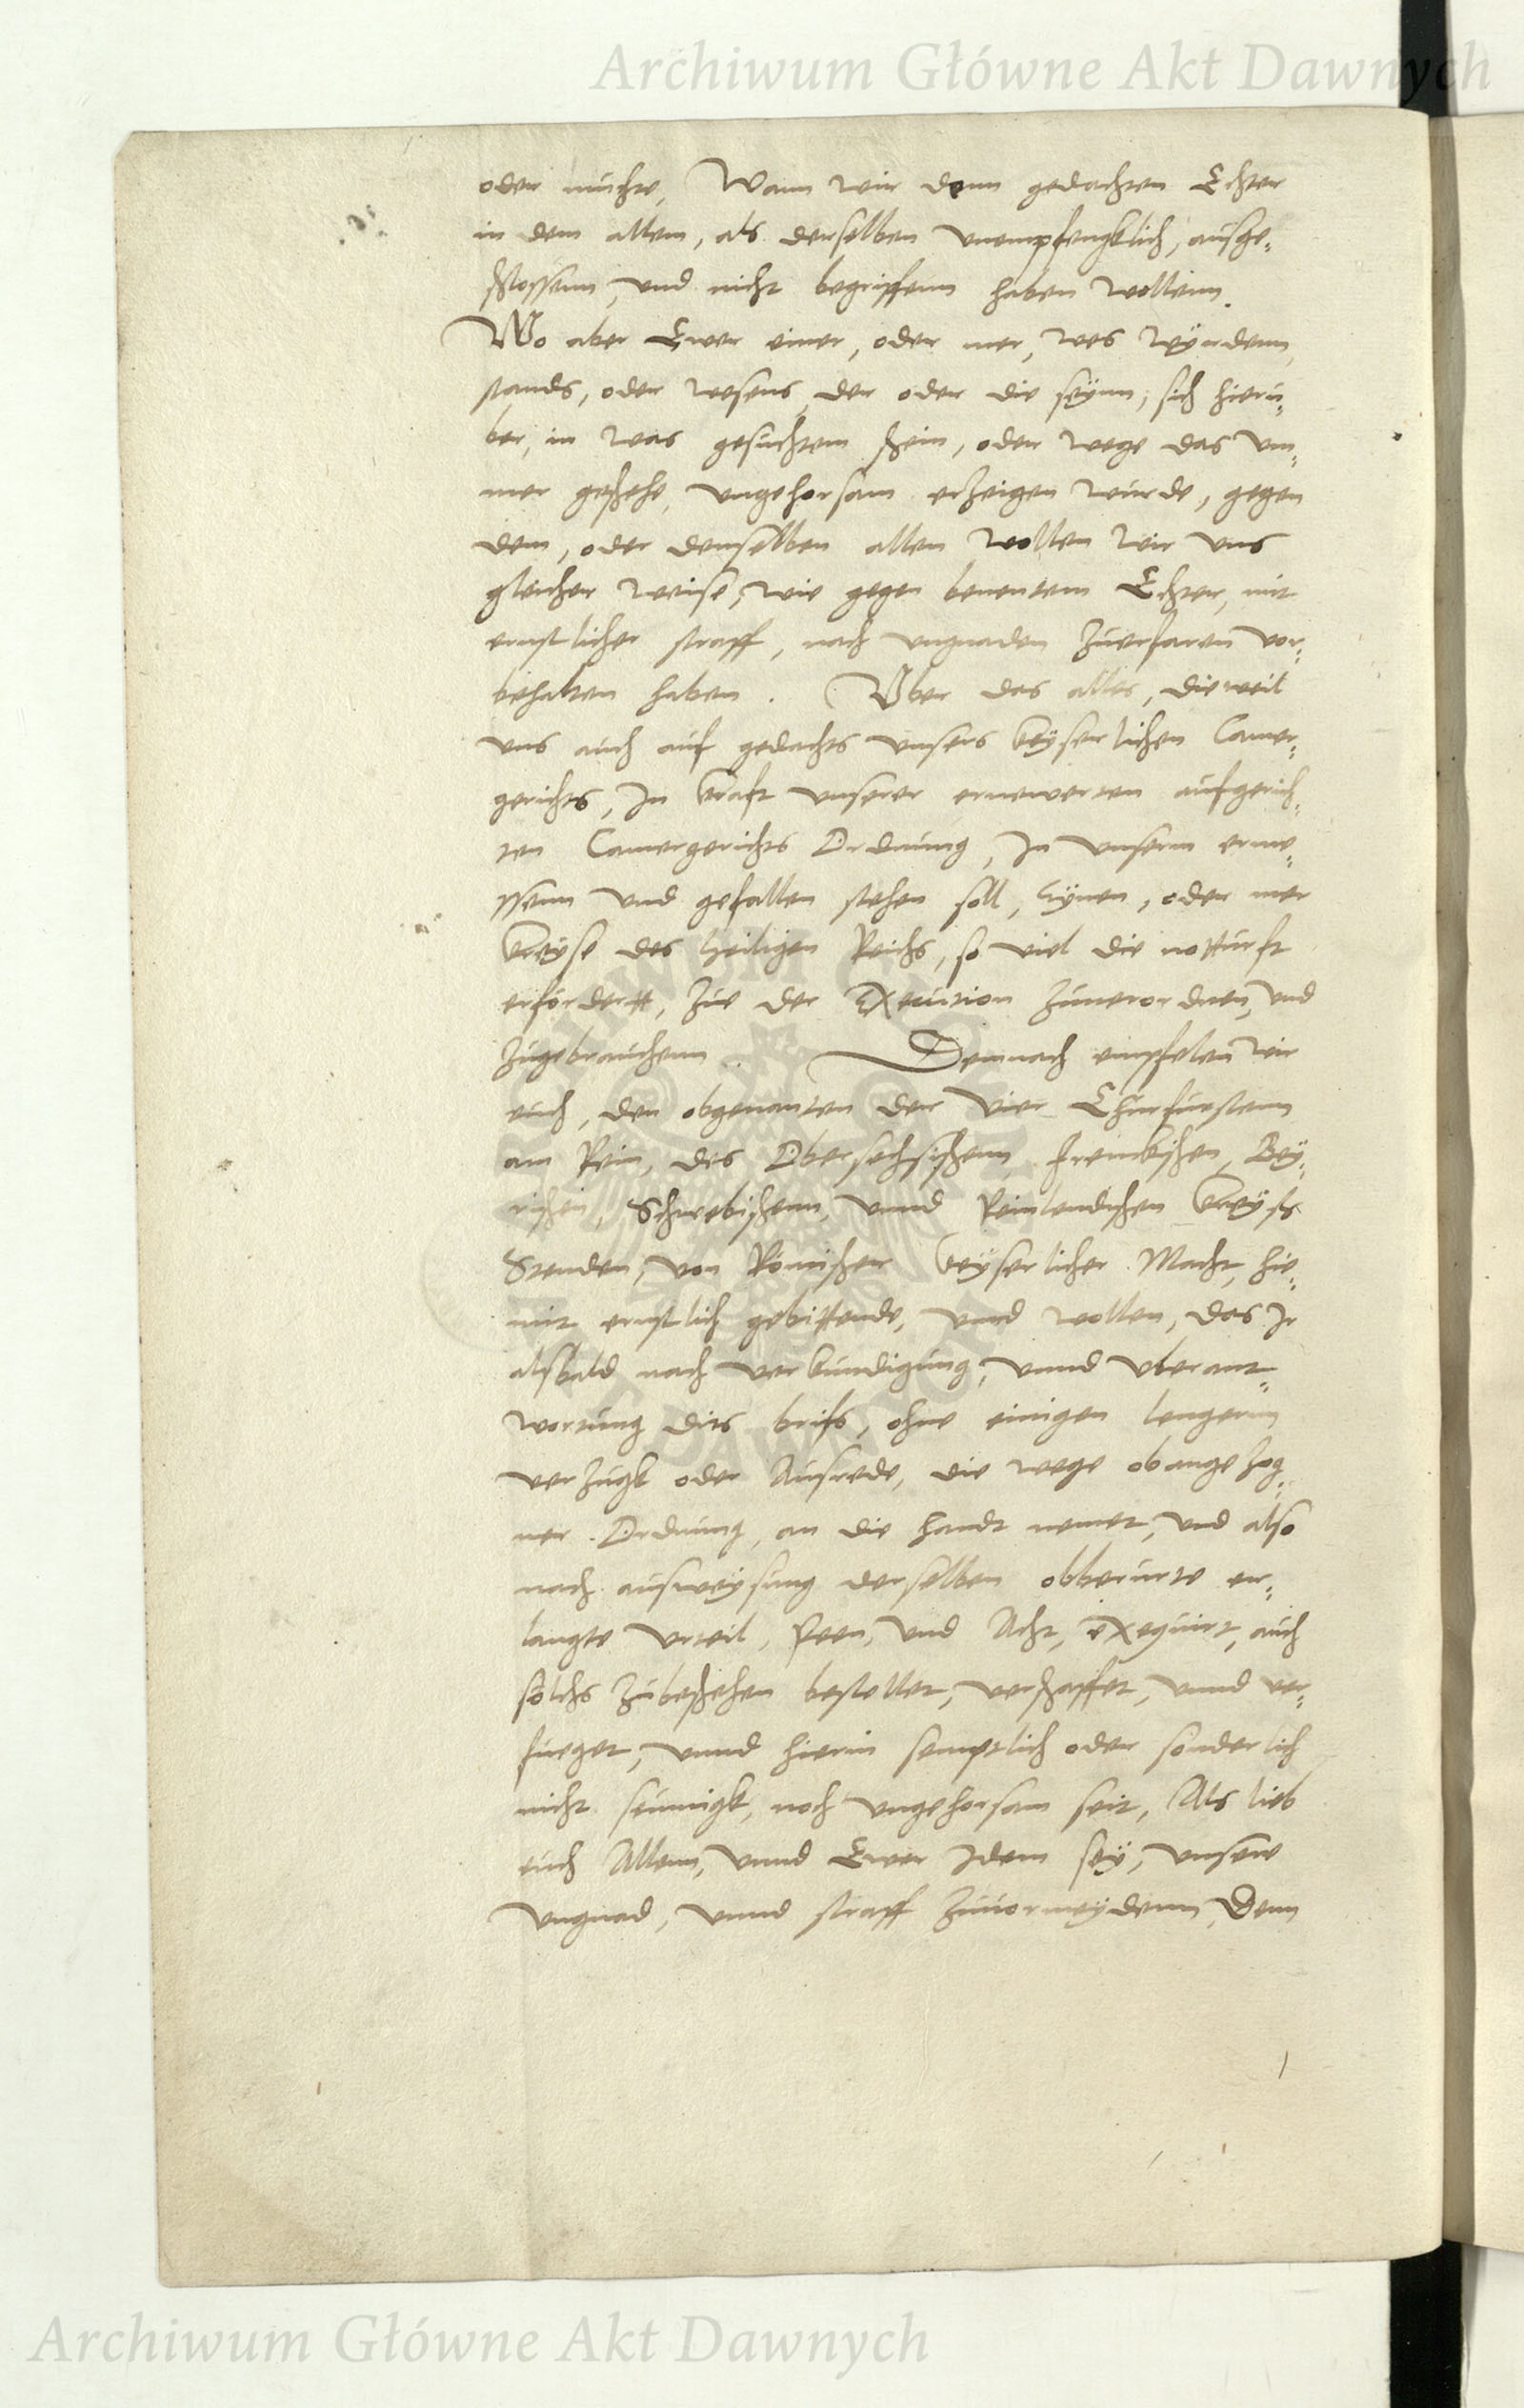 Archiwum Główne Akt Dawnych
oder muchte, Wann wir denn gedachten Echter
in dem allem, als derselben unempfengklich, ausge-
schlossenn, und nicht begriffenn haben wollenn.
Wo aber Ewer einer, oder mer, wes wyrdenn,
stands, oder wesens, der oder die seynn, sich hieru-
ber, in was gesuchtem schein, oder wege das im-
mer geschehe, ungehorsam erzeigen wurde, gegen
dem, oder denselben allen wollen wir uns
gleicher weise, wie gegen benentem Echter, mit
ernstlicher straff, nach ungnaden zuerfaren vor-
behalten haben. Über das alles, dieweil
uns auch auf gedachts unsers keyserlichen Camer-
gerichts, In krafft unserer ernewerten aufgerich-
ten Camergerichts Ordnung, In unserm erme-
ssenn und gefallen stehen soll, Eynen, oder mer
kreyse des heiligen Reichs, so viel die notturft
erfordertt, zue der Execution zuuerordnen, und
zugebrauchenn. Demnach empfelen wir
euch, den obgenanten der vier Churfurstenn
am Rein, des Obersechsischenn, Frenckischen, Bey-
rischen, Schwebischenn, unnd Reinlendischen kreyss
Stenden, von Römischer keyserlicher Macht, hie-
mit ernstlich gebittende, unnd wollen, das Ir
alsbald nach verkundigung, unnd uberant-
wortung dits briefs, ohne einigen lengern
verzugk oder Ausrede, die wege obangezog-
ner Ordnung, an die handt nemet, und also
nach ausweysung derselben obberurte er-
langte Urteil, Peen, und Acht, exequirt, auch
solchs zubeschehen bestellet, verschaffet, unnd ver-
fueget, unnd hierin semptlich oder sonderlich
nicht seumigk, noch ungehorsam seit, Als lieb
euch Allenn, unnd Ewer Idem sey, unsere
Ungnad, unnd straff zuuormeydenn, Denn
Archiwum Główne Akt Dawnych